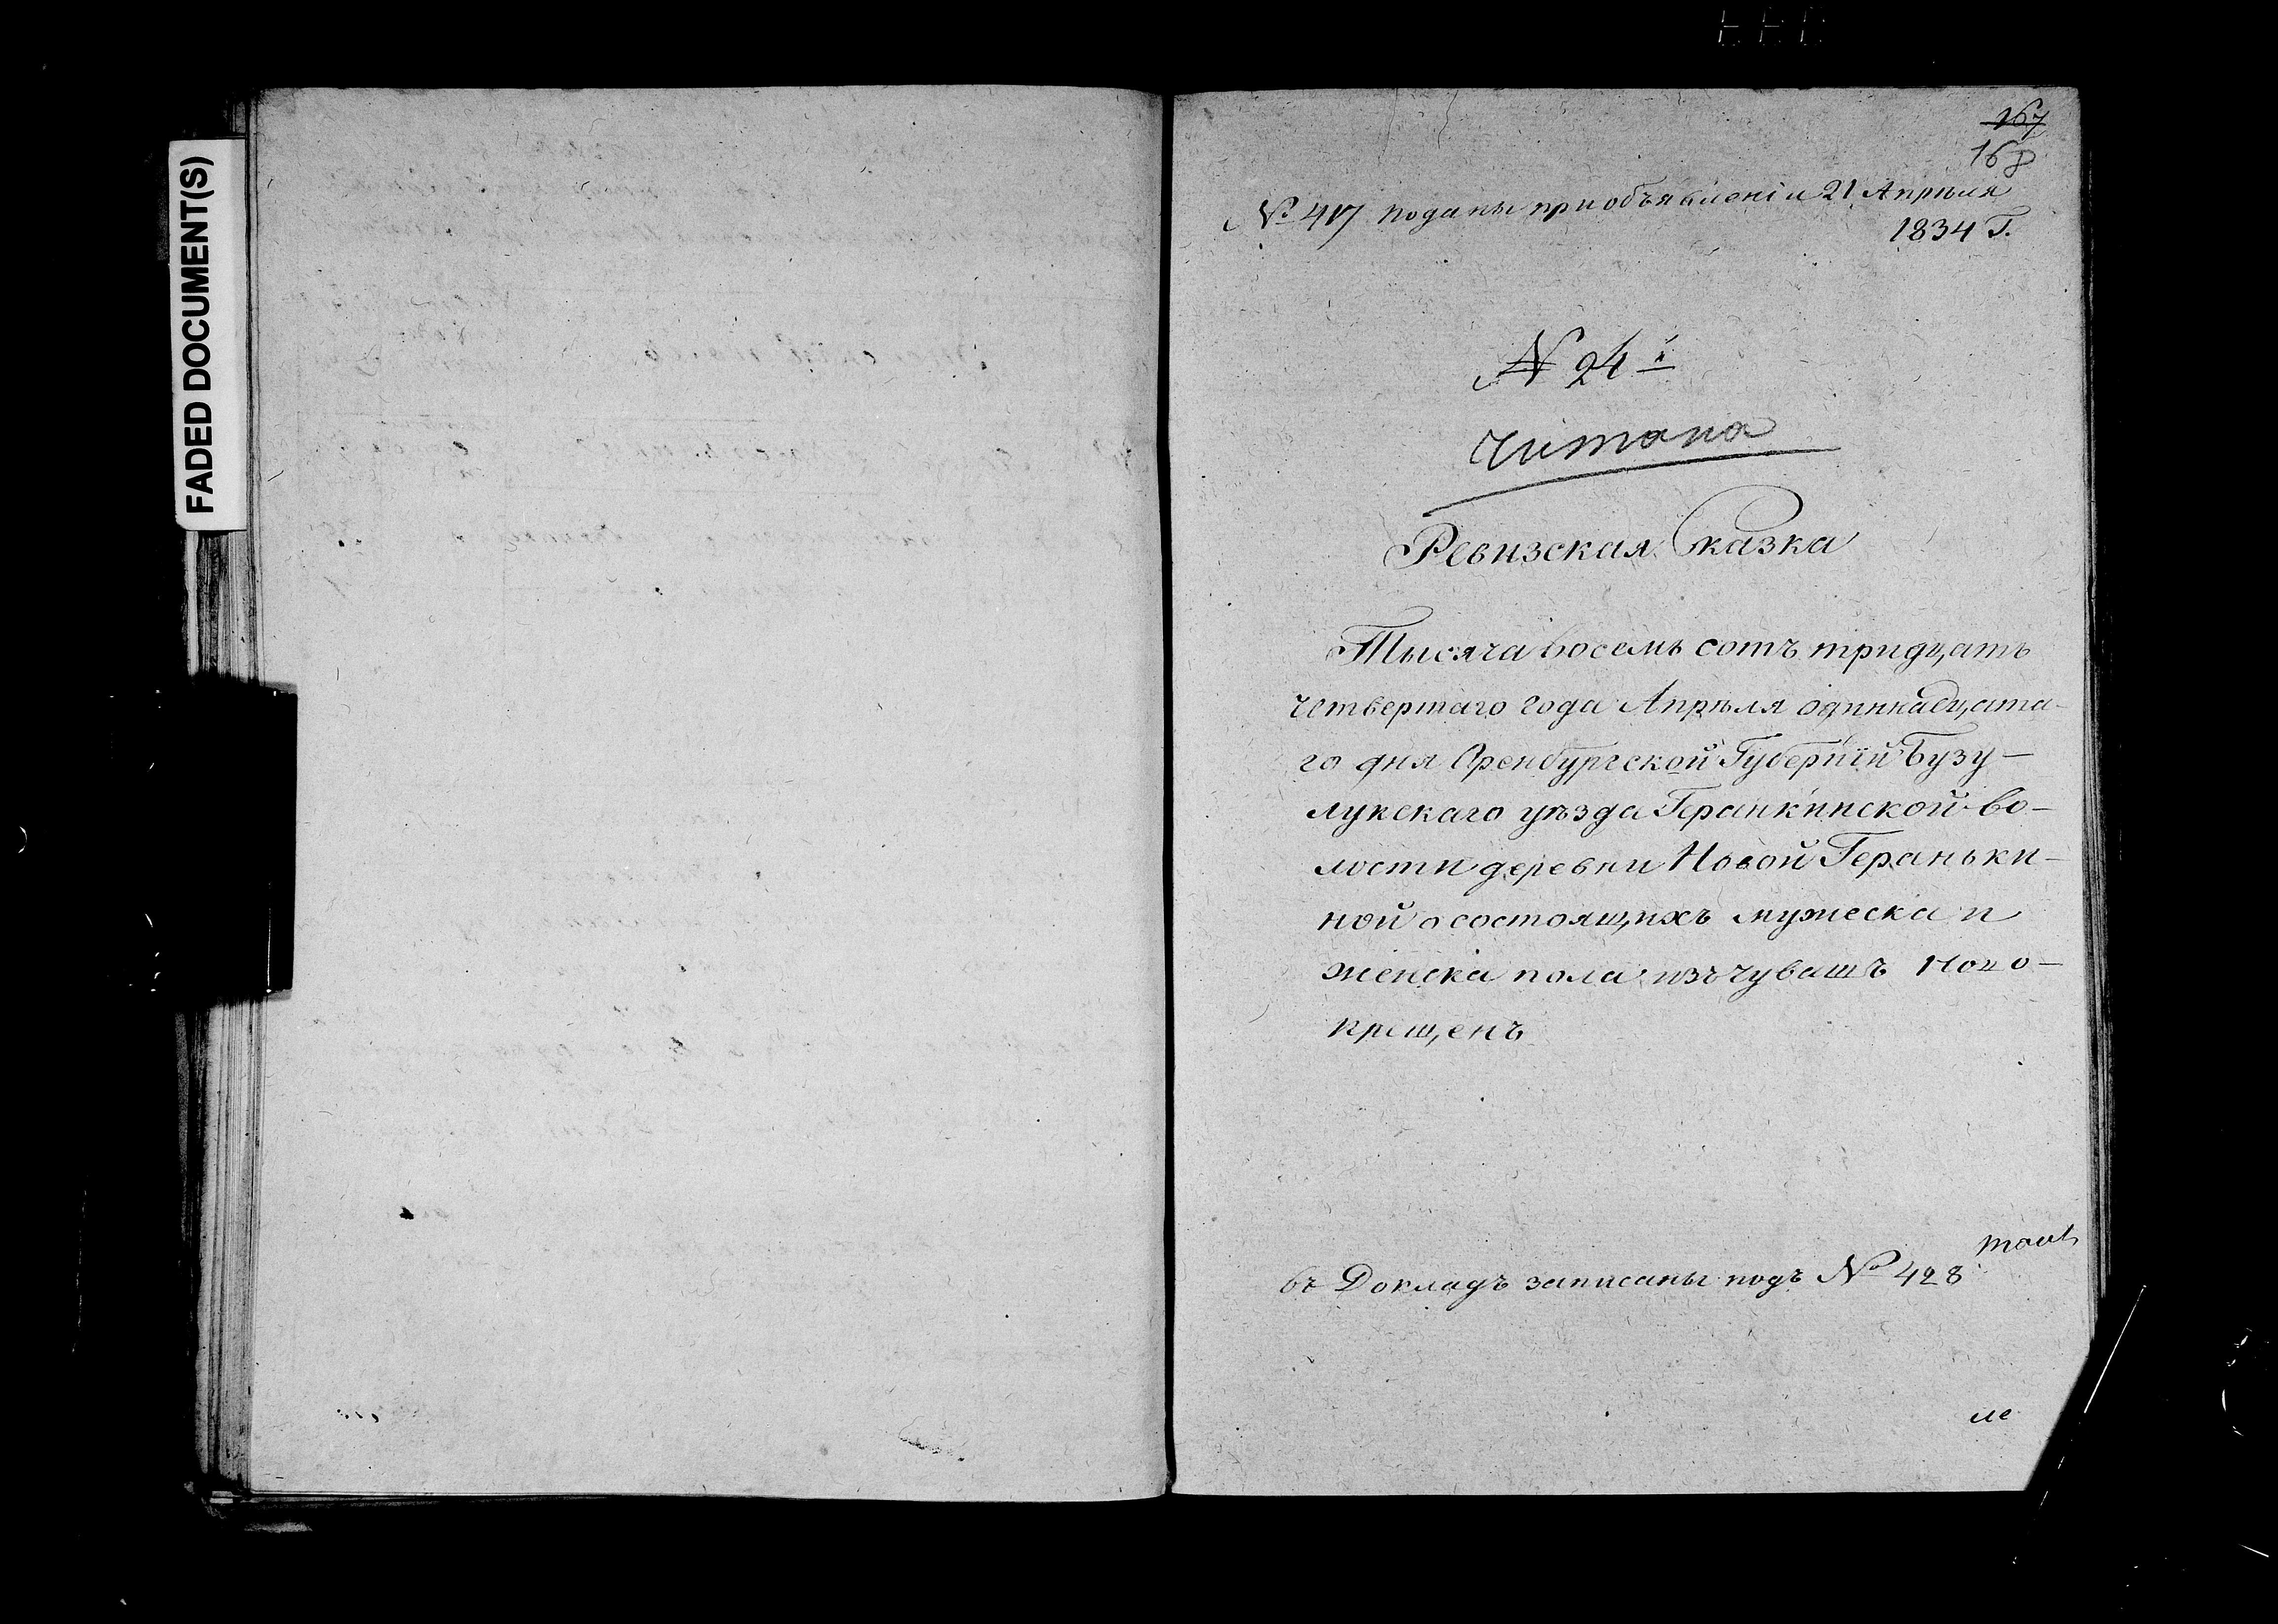 FADED DOCUMENT(S)
167
168
№ 417 поданы при объявленіи 21 Апрѣля
1834 Г.
№ 24й
Читана
Ревизская Сказка
Тысяча восемь сотъ тридцать
четвертаго года Апрѣля одиннадцата-
го дня Оренбургской Губерніи Бузу-
лукскаго уѣзда Геранкинской во-
лости деревни Новой Геранькиной
ной о состоящихъ мужеска и
женска пола изъ чувашъ ново-
крещенъ
въ Докладъ записаны подъ № 428